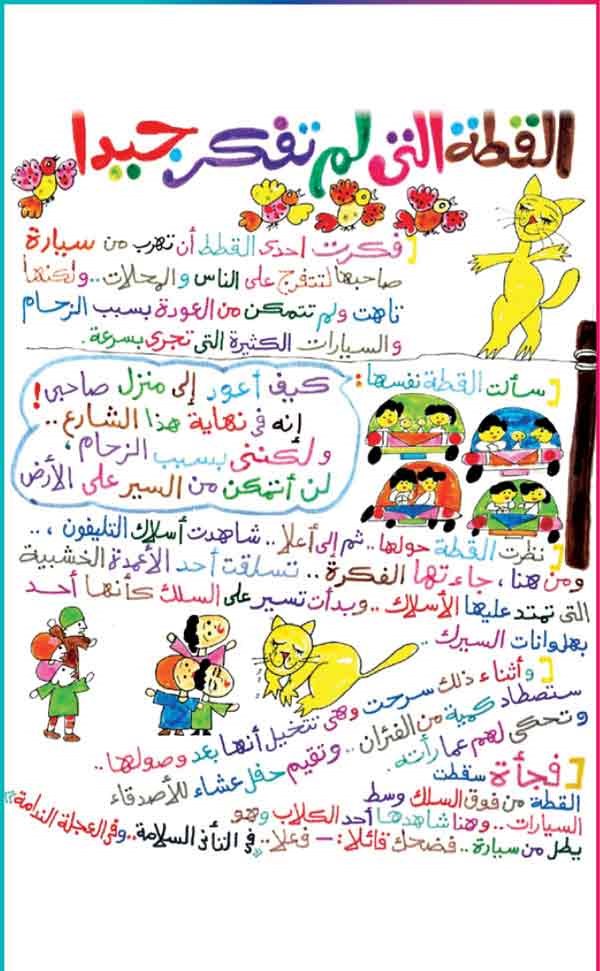 القطة التى لم تفكر جيدا
[ فكرت احدى القطط أن تهرب من سيارة
صاحبها لتتفرج على الناس والمحلات .. ولكنها
تاهت ولم تتمكن من العودة بسبب الزحام
والسيارات الكثيرة التى تجرى بسرعة.
[ سألت القطة نفسها:
كيف أعود إلى منزل صاحبى!
إنه فى نهاية هذا الشارع ..
ولكننى بسبب الزحام،
لن أتمكن من السير على الأرض
[ نظرت القطة حولها .. ثم إلى أعلا .. شاهدت أسلاك التليفون ، ..
ومن هنا ، جاءتها الفكرة .. تسلقت أحد الأعمدة الخشبية
التى تمتد عليها الأسلاك .. وبدأت تسير على السلك كأنها أحد
بهلوانات السيرك ..
[ وأثناء ذلك سرحت وهى تتخيل أنها بعد وصولها ..
ستصطاد كمية من الفئران .. وتقيم حفل عشاء للأصدقاء
وتحكى لهم عما رأته.
[ فجأة سقطت
القطة من فوق السلك وسط
السيارات .. وهنا شاهدها أحد الكلاب وهو
يطل من سيارة .. فضحك قائلا :- فعلا .. "فى التأنى السلامة .. وفى العجلة الندامة"!!